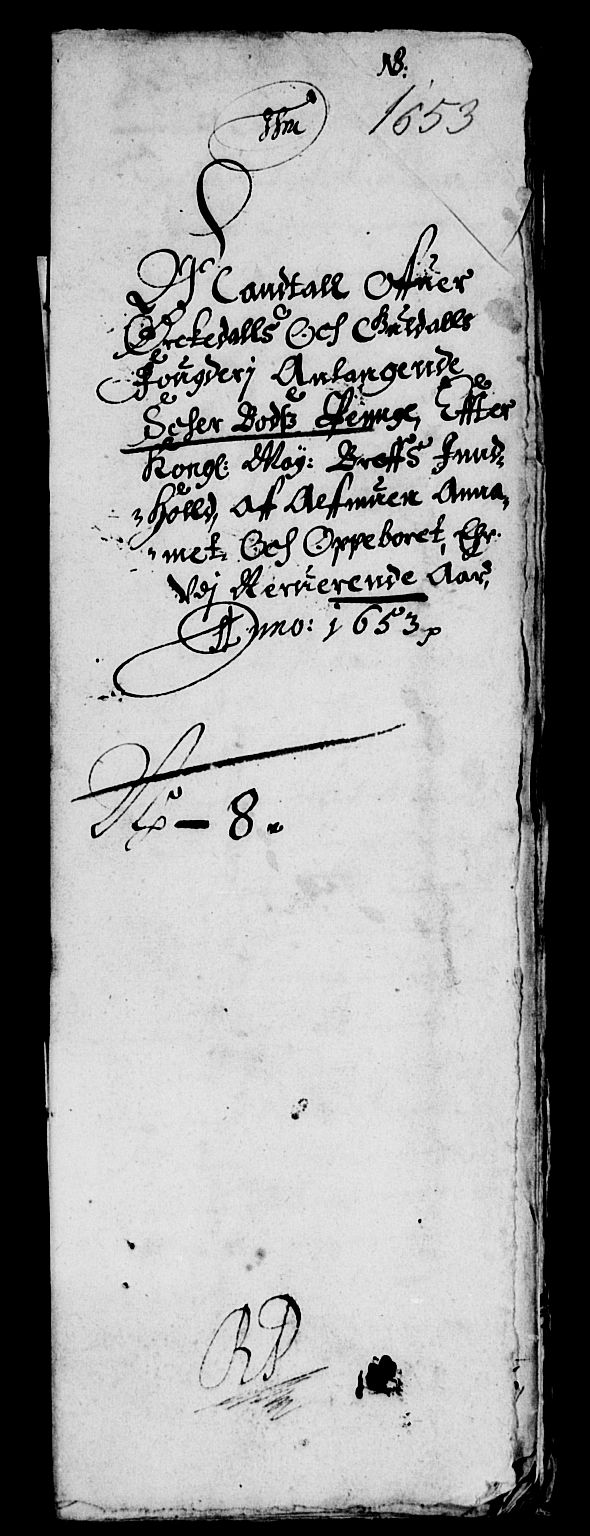 N8:
1653
Et Mandtall Offuer
Orckedalls Och Guldalls
Fougderj Anlangende
Scher Bods Penge, Effter
Kongl: May: Breffs Innd-
-hold, Af Allmuen Anna-
-met Och Oppeboret, for
dj Neruerende Aar,
Anno: 1653
N - 8.